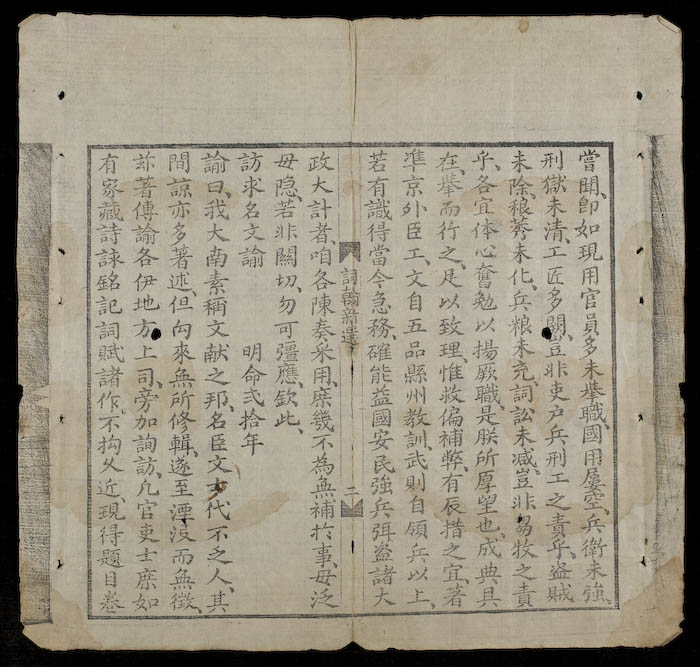 當聞、卽如現用官員多未舉職國用屢空、兵衛未強、
刑獄未清、工匠多闕、豈非吏户兵刑工之責乎、盗賊
未除、稂莠未化、兵粮未充、詞訟未减、豈非芻牧之責
乎、各宜体心奮勉以揚厥職、是朕所厚望也、成典具
在、舉而行之、足以致理、惟救偏補弊、有辰措之宜、著
準京外臣工、文自五品縣州教訓、武則自領兵以上、
若有識得當今急務、確能益國安民強兵弭盗諸大
詞翰新選 二
政大計者、咱各陳奏采用、庶幾不為無補於事、毋泛
毋隐、若非關切、勿可彊應、欽此、
訪求名文諭 明命弍拾年
諭曰、我大南素稱文献之邦、名臣文士代不乏人、其
間諒亦多著述、但向來無所修輯、遂至湮没而無徵、
玆著傳諭各伊地方上司、旁加詢訪、凢官吏士庶如
有家藏詩詠銘記詞賦諸作、不拘久近、現得題目巻